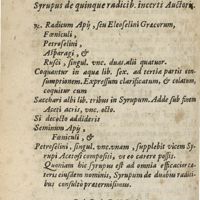 Syrupus de quinque radicib. incerti Auctoris.
℞. Radicum Apij, seu Eleoselini Græcorum,
Fœniculi,
Petroselini,
Asparagi, &
Rusci, singul. vnc. duas alii quatuor.
Coquantur in aqua lib. sex. ad tertia partis consumptionem. Expressum clarificatum, & colatum, coquitur cum
Sacchari albi lib. tribus in Syrupum. Adde sub finem
Aceti acris, vnc. octo.
Si decocto addideris
Seminum Apij,
Fœniculi, &
Petroselini, singul. vnc. vnam, supplebit vicem Syrupi Acetosi compositi, vt eo carere possis.
Quoniam hic Syrupus est ad omnia efficacior cæteris eiusdem nominis, Syrupum de duabus radicibus consultò prætermisimus.